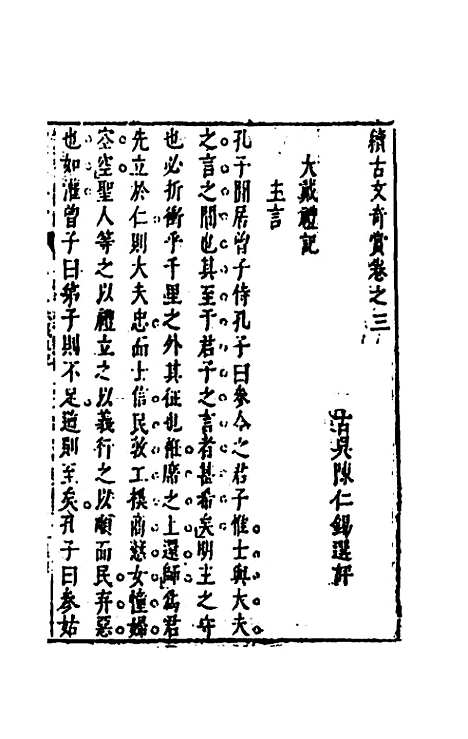 續古文奇賞卷之三
古吳陳仁錫選評
大戴禮記
主言
孔子閒居曾子侍孔子曰參今之君子惟士與大夫
之言之聞也其至于君子之言者甚希矣明主之守
也必折衝乎千里之外其征也袵席之上還師爲君
先立於仁則大夫忠而士信民敦工樸商慤女憧婦
空空聖人等之以禮立之以義行之以順而民弃惡
也如灌曾子曰弟子則不足道則至矣孔子曰參姑